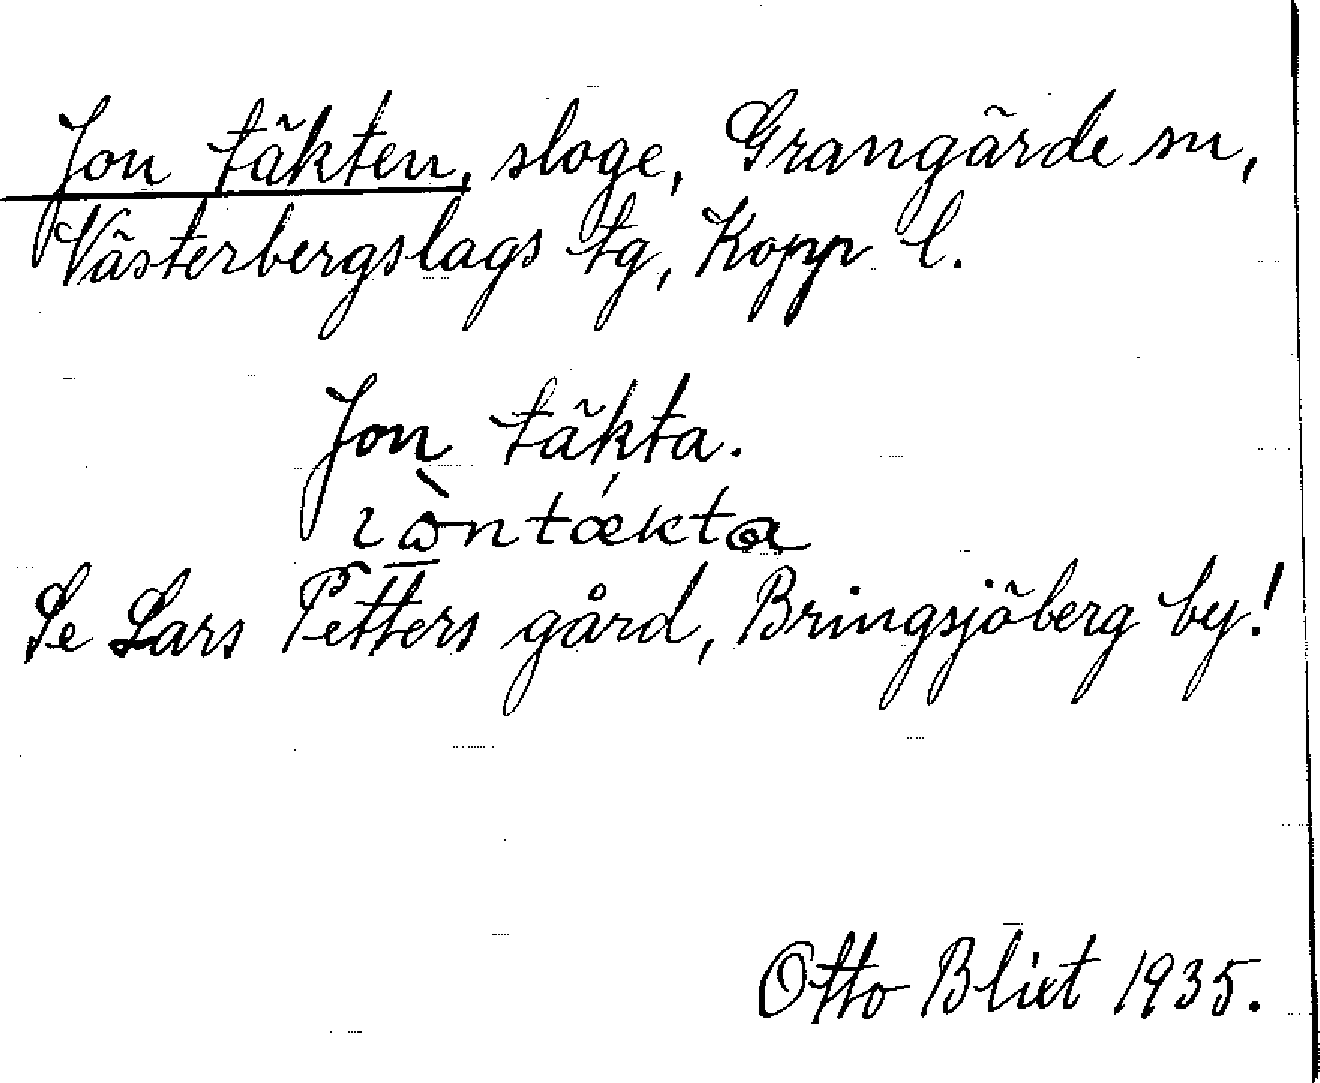 Jon täkten, sloge, Grangärde sn,
Västerbergslags tg, Kopp l.
Jon täkta.
ıὼntækta
Se Lars Petters gård, Bringsjöberg by!
Otto Blixt 1935.